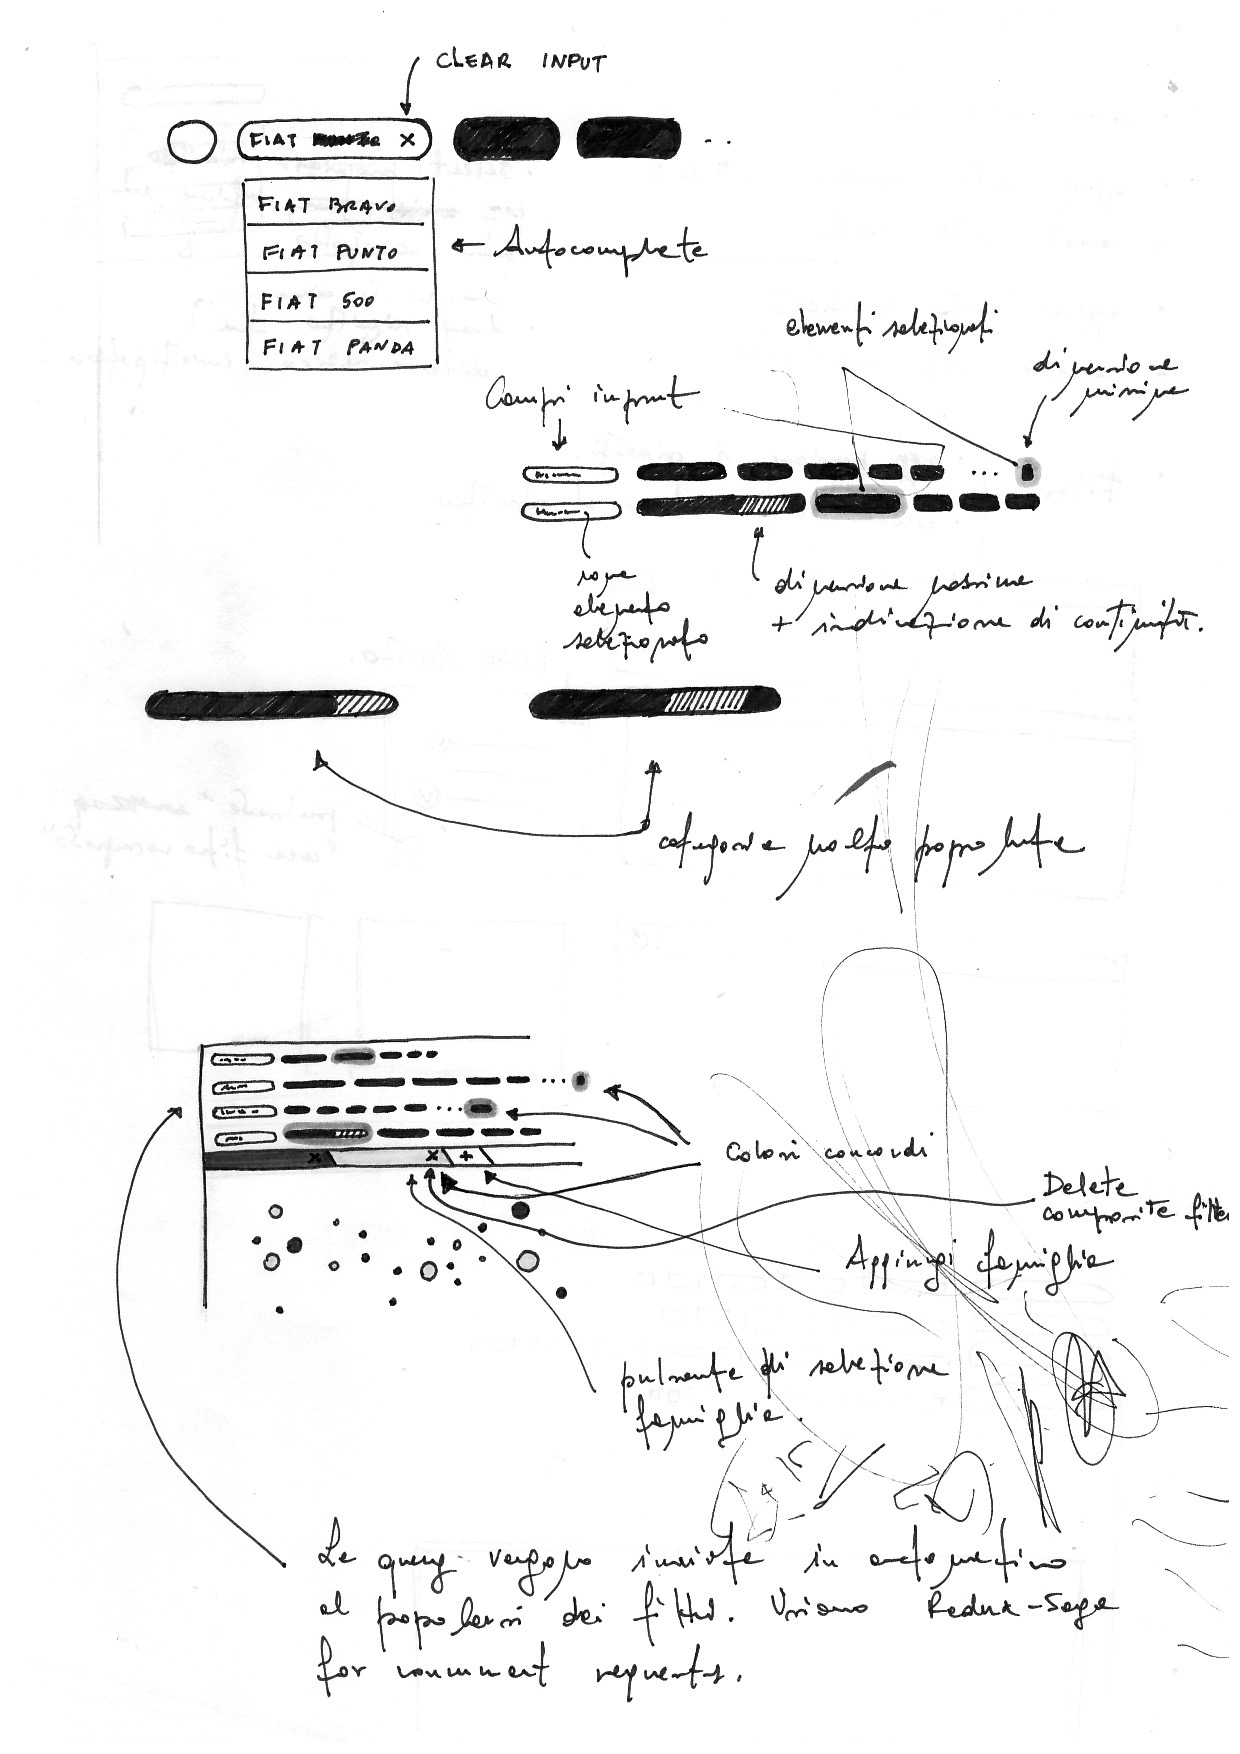 CLEAR INPUT
FIAT x
FIAT BRAVO
FIAT PUNTO
FIAT 500
FIAT PANDA
← Autocomplete
elementi selezionati
dimensione
minima
Campi input
...
nome
elemento
selezionato
dimensione massima
+ indicazione di continuità.
categorie molto popolate
...
...
x x +
Colori concordi
Delete
composite filter
Aggiungi famiglia
pulsante di selezione
famiglia.
Le query vengono inviate in automatico
al popolarsi dei filtri. Usiamo Redux-Saga
for concurrent requests.